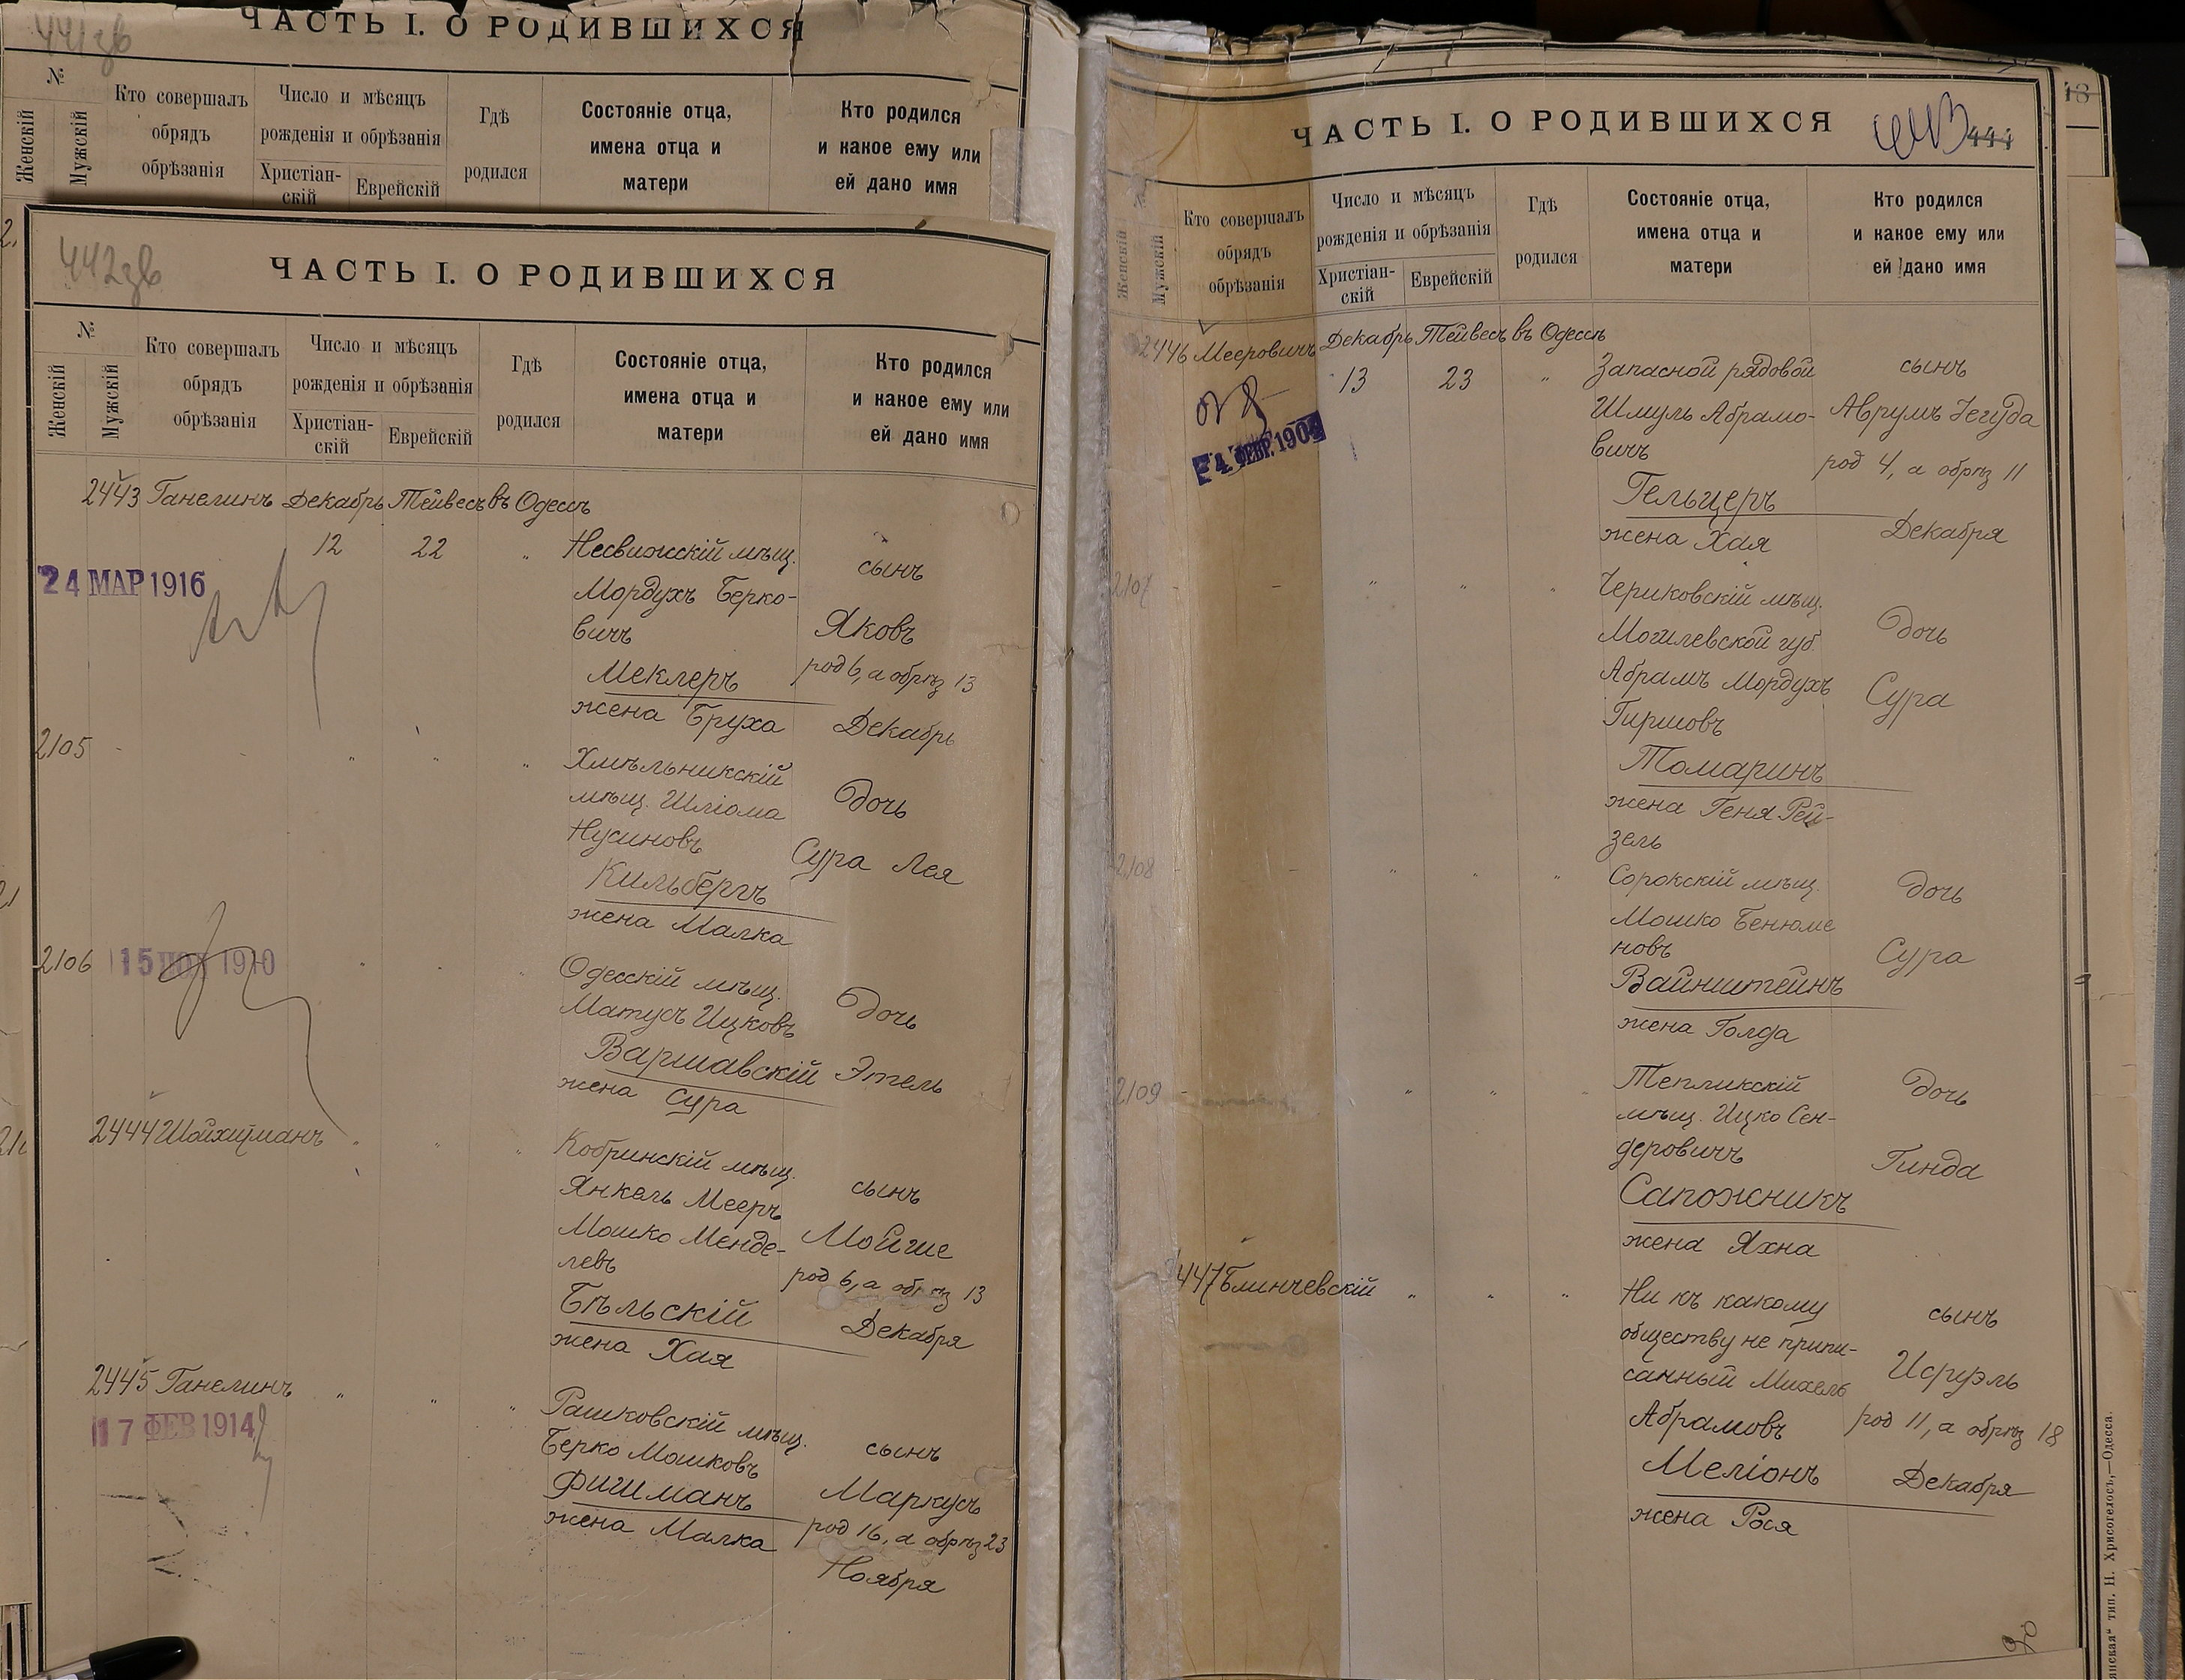 441зв
ЧАСТЬ I. О РОДИВШИХСЯ
№
Женскій
Мужскій
Кто совершалъ
обрядъ
обрѣзанія
Число и мѣсяцъ
рожденія и обрѣзанія
Христіан-
скій
Еврейскій
Гдѣ
родился
Состояніе отца,
имена отца и
матери
Кто родился
и какое ему или
ей дано имя
442зв
ЧАСТЬ I. О РОДИВШИХСЯ
№
Женскій
Мужскій
Кто совершалъ
обрядъ
обрѣзанія
Число и мѣсяцъ
рожденія и обрѣзанія
Христіан-
скій
Еврейскій
Гдѣ
родился
Состояніе отца,
имена отца и
матери
Кто родился
и какое ему или
ей дано имя
2443 Ганелинъ Декабрь Тейвесъ въ Одессѣ
12 22 „ Несвижскій мѣщ.
Мордухъ Берко-
вичъ
Меклеръ
жена Бруха
сынъ
Яковъ
род 6, а обрѣз 13
Декабрь
24 МАР 1916
2105 - „ „ „ Хмѣльникскій
мѣщ. Шліома
Нусиновъ
Кильбергъ
жена Малка
дочь
Сура Лея
2106
15 1910
Одесскій мѣщ.
Матусъ Ицковъ
Варшавскій
жена Сура
дочь
Этель
2444 Шойхитманъ „ „ „ Кобринскій мѣщ.
Янкель Мееръ
Мошко Менде-
левъ
Бѣльскій
жена Хая
сынъ
Мойше
род 6, а обрѣз 13
Декабря
2445 Ганелинъ „ „ „ Рашковскій мѣщ.
Берко Мошковъ
Фишманъ
жена Малка
сынъ
Маркусъ
род 16, а обрѣз 23
Ноября
17 ФЕВ 1914
ЧАСТЬ I. О РОДИВШИХСЯ
443 444
№
Женскій
Мужскій
Кто совершалъ
обрядъ
обрѣзанія
Число и мѣсяцъ
рожденія и обрѣзанія
Христіан-
скій
Еврейскій
Гдѣ
родился
Состояніе отца,
имена отца и
матери
Кто родился
и какое ему или
ей дано имя
2446 Мееровичъ Декабрь Тейвесъ въ Одессѣ
13 23 „ Запасной рядовой
Шмуль Абрамо-
вичъ
Гельцеръ
жена Хая
сынъ
Аврумъ Іегуда
род 4, а обрѣз 11
Декабря
4 ФЕВР. 190
2107 - - „ „ „ Чериковскій мѣщ.
Могилевской губ.
Абрамъ Мордухъ
Гиршовъ
Томаринъ
жена Геня Рей-
зель
дочь
Сура
2108 - - „ „ „ Сорокскій мѣщ.
Мошко Бенюме
новъ
Вайнштейнъ
жена Голда
дочь
Сура
2109 - „ „ „ Тепликскій
мѣщ. Ицко Сен-
деровичъ
Сапожникъ
жена Яхна
дочь
Гинда
2447 Блинчевскій „ „ „ Ни къ какому
обществу не припи-
санный Михель
Абрамовъ
Меліонъ
жена Рося
сынъ
Исруэль
род 11, а обрѣз 18
Декабря
тип. Н. Хрисогелосъ,—Одесса.